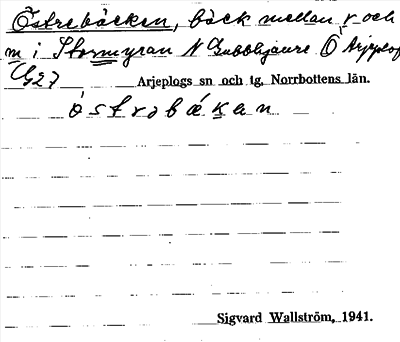 Östrebäcken, bäck mellan r och
m i Stormyran N Gubblijaure Ö Arjeplog
G27
Arjeplogs sn och tg, Norrbottens län.
östrəbäkən
Sigvard Wallström, 1941.